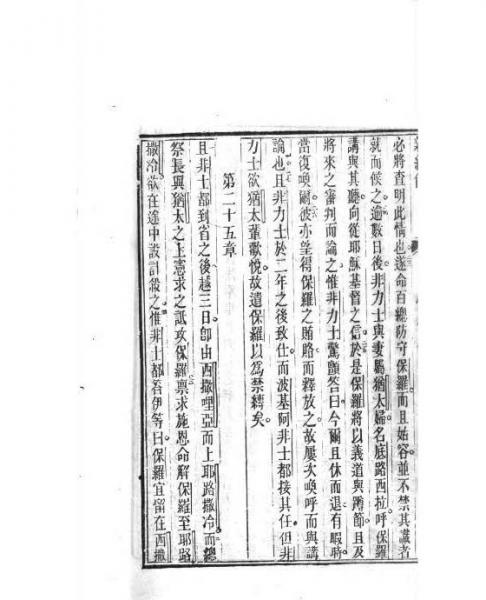 必將查明此情也遂命百總防守保羅而且姑容並不禁其識者
就而候之逾數日後非力士與妻屬猶太婦名底路西拉呼保羅
講與其聽向從耶穌基督之信於是保羅將以義道與蹲節且及
將來之審判而論之惟非力士驚顫答曰今爾且休而退有暇時
當復喚爾彼亦望得保羅之賄賂而釋放之故屢次喚呼而與講
論也且非力士於二年之後致仕而波基阿非士都接其任但非
力士欲猶太輩歡悅故遺保羅以為禁縛矣
第二十五章
且非士都到省之後越三日卽由西撒哩亞而上耶路撒冷而總
祭長與猶太之上憲求之詆攻保羅禀求施恩命解保羅至耶路
撒冷欲在途中設計殺之惟非士都答伊等曰保羅宜留在西撒